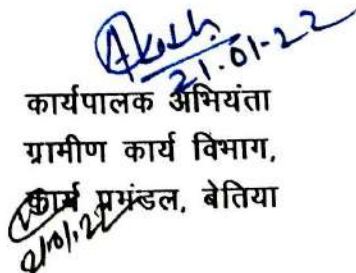 21.01.22
कार्यपालक अभियंता
ग्रामीण कार्य विभाग,
कार्य प्रमंडल, बेतिया
21.01.22